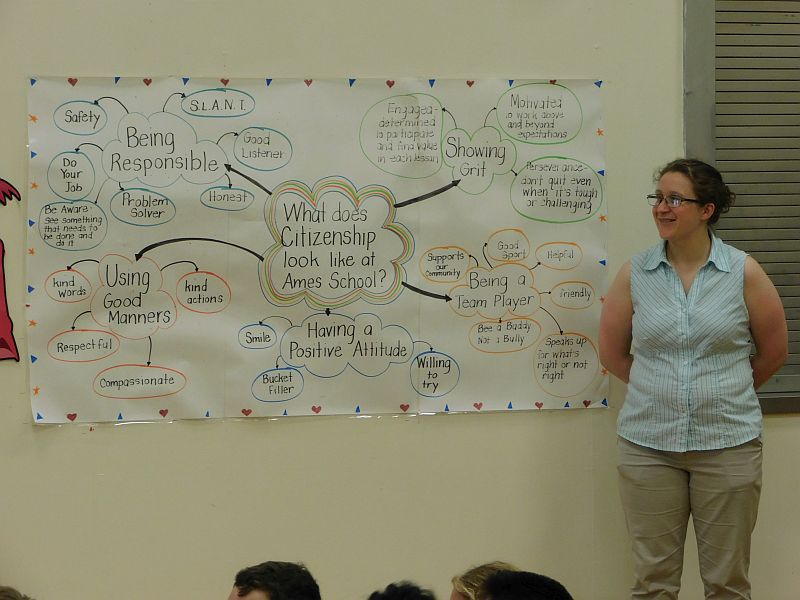 What does
Citizenship
look like at
Ames School?
Being
Responsible
Safety
S.L.A.N.T.
Good
Listener
Honest
Problem
Solver
Do
Your
Job
Be Aware-
see something
that needs to
be done and
do it
Showing
Grit
Engaged-
determined
to participate
and find value
in each lesson
Motivated
to work above
and beyond
expectations
Perseverance-
don't quit even
when it's tough
or challenging
Using
Good
Manners
kind
words
kind
actions
Respectful
Compassionate
Having a
Positive Attitude
Smile
Bucket
Filler
Willing
to
try
Being a
Team Player
Supports
our
Community
Good
Sport
Helpful
friendly
Bee a Buddy
Not a Bully
Speaks up
for what's
right or not
right